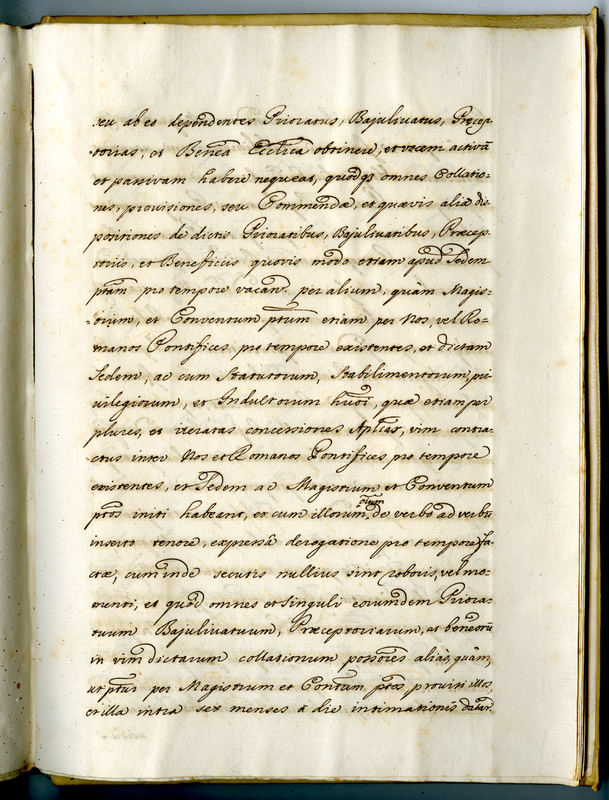 seu ab eo dependentes Prioratus, Bajulivatus, Præcep-
torias, et Beneᵃ Ecclicᵃ obtinere, et vocem activã
et passivam habere nequeat, quodq; omnes Collatio-
nes, provisiones, seu Commendæ, et quævis aliæ dis-
positiones de dictis Prioratibus, Bajulivatibus, Præcep-
toriis, et Beneficiis quovis modo etiam apud Sedem
ptam pro tempore vacan. per alium, quàm Magis-
trum, et Conventum ptum etiam per Nos, vel Ro-
manos Pontifices pro tempore existentes, et dictam
Sedem, ac cum Statutorum, Stabilimentorum, pri
vilegiorum, et Indultorum huoi, quæ etiam per
plures, et iteratas concessiones Aplicas, vim contra-
ctus inter Nos et Romanos Pontifices pro tempore
existentes, et Sedem ac Magistrum et Conventum
ptos initi habeant, et cum illorum oium de verbo ad verbũ
inserto tenore, expressâ derogatione pro tempore fa-
ctæ, cum inde secutis nullius sint roboris, vel mo-
menti, et quod omnes et singuli eorumdem Priora-
tuum Bajulivatuum, Præceptoriarum, et beneorũ
in vim dictarum collationum possores aliàs, quàm,
ut ptur per Magistrum et Contum ptos, provisi illos,
et illa intra sex menses à die intimationis datar.